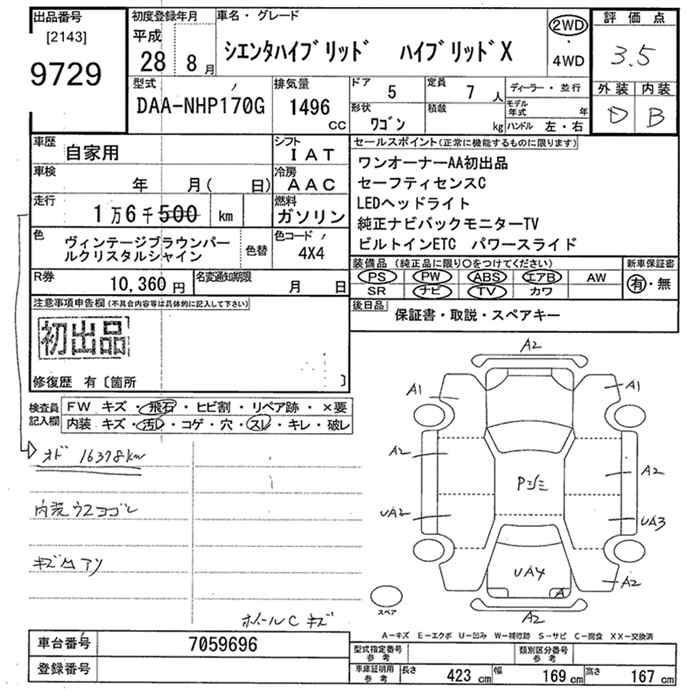 出品番号
[2143]
9729
初度登録年月
平成
28 8月
車名・グレード
シエンタハイブリッド ハイブリッドX
2WD
・
4WD
評価点
3.5
外装 内装
D B
型式
DAA-NHP170G
排気量
1496
CC
ドア
5
定員
7人
形状
ワゴン
積載
kg
ディーラー・並行
モデル年式 年
ハンドル 左・右
車歴
自家用
シフト
IAT
車検
年 月( 日)
冷房
AAC
走行
1万6千500 km
燃料
ガソリン
色
ヴィンテージブラウンパールクリスタルシャイン
色替
色コード
4X4
R券
10,360円
名変通知期限
月 日
セールスポイント(正常に機能するものに限ります)
ワンオーナーAA初出品
セーフティセンスC
LEDヘッドライト
純正ナビバックモニターTV
ビルトインETC パワースライド
装備品(純正品に限り○をつけてください)
PS PW ABS エアB AW
SR ナビ TV カワ
新車保証書
有・無
後日品
保証書・取説・スペアキー
注意事項申告欄(不具合内容等は具体的に記入して下さい)
初出品
修復歴 有〔箇所 〕
検査員記入欄
FW キズ・飛石・ヒビ割・リペア跡・×要
内装 キズ・汚レ・コゲ・穴・スレ・キレ・破レ
オド 16378km
内装ウスヨゴレ
キズ凹アリ
ホイールC キズ
A2
A1 A1
A2 A2
Pシミ
UA2 UA3
UA4
A
A2
A2
スペア
A－キズ E－エクボ U－凹み W－補修跡 S－サビ C－腐食 XX－交換済
車台番号
7059696
登録番号
型式指定番号
参考
類別区分番号
参考
車庫証明用
参考
長さ 423 cm 幅 169 cm 高さ 167 cm